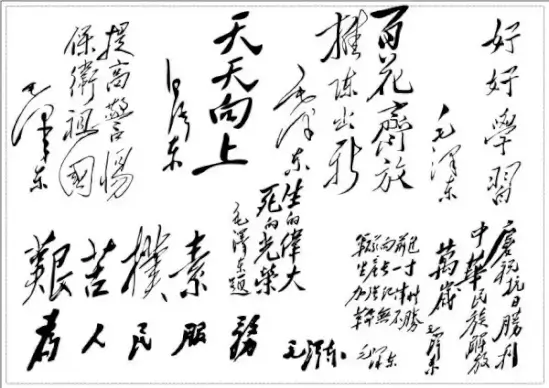 好好學習
毛泽东
百花齊放
推陈出新
毛泽东
天天向上
毛泽东
提高警惕
保衛祖國
毛泽东
慶祝抗日勝利
中華民族解放
萬歲
毛泽东
毛泽东
生的偉大
死的光榮
毛泽东题
艱苦樸素
為人民服務
毛泽东